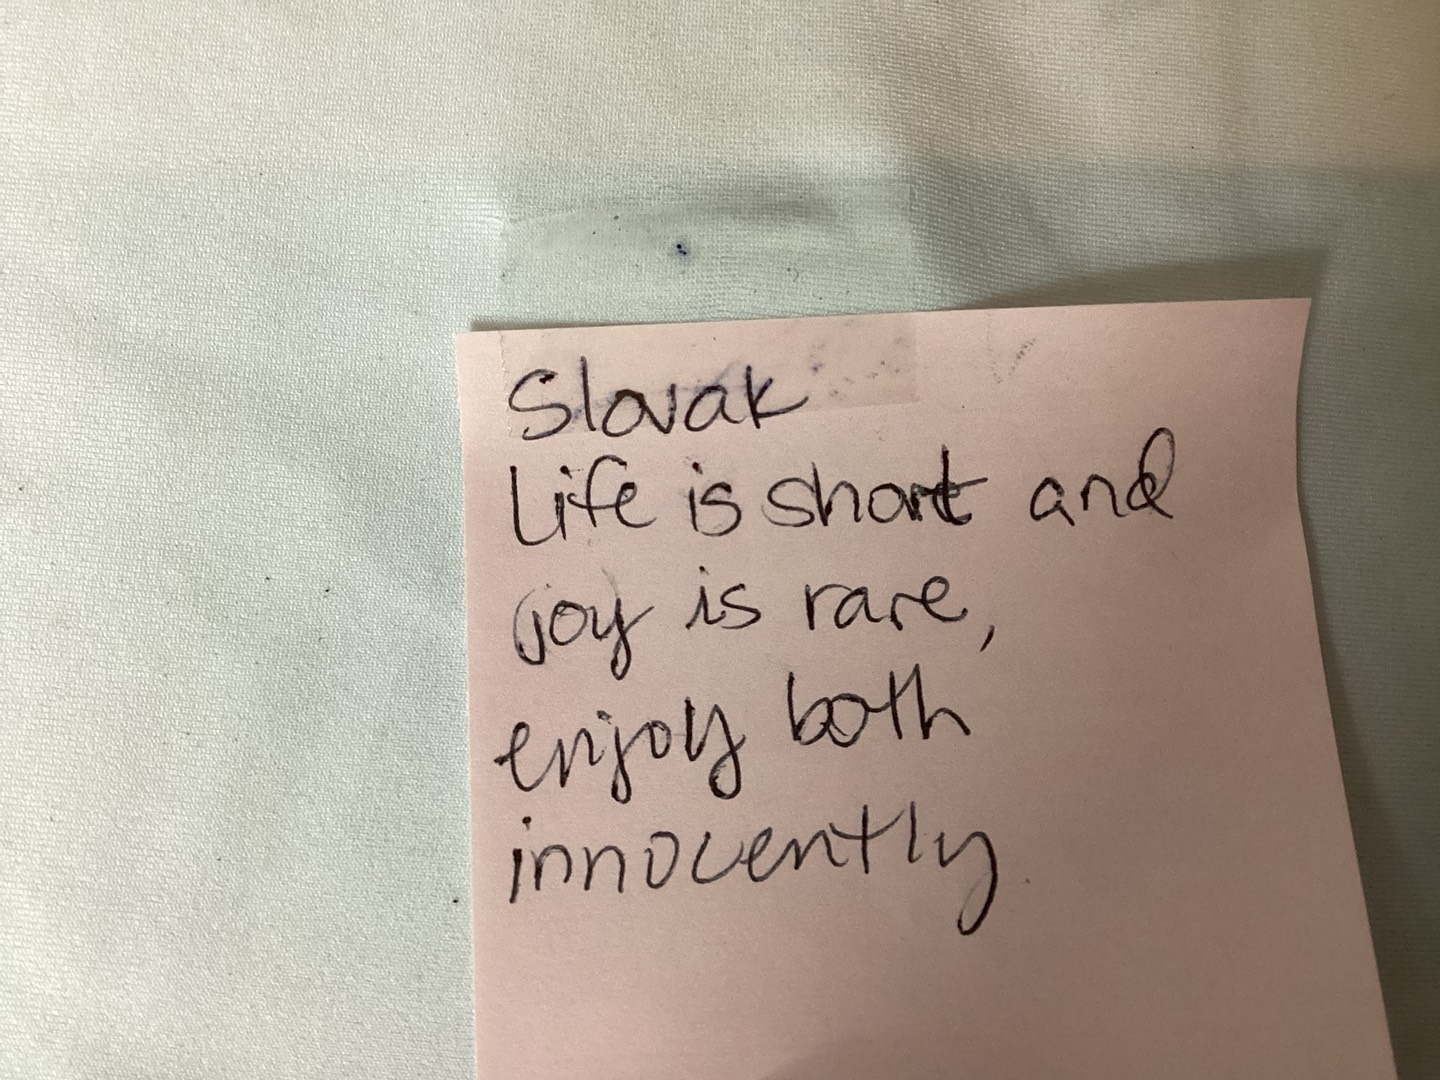 Slovak
Life is short and
joy is rare,
enjoy both
innocently